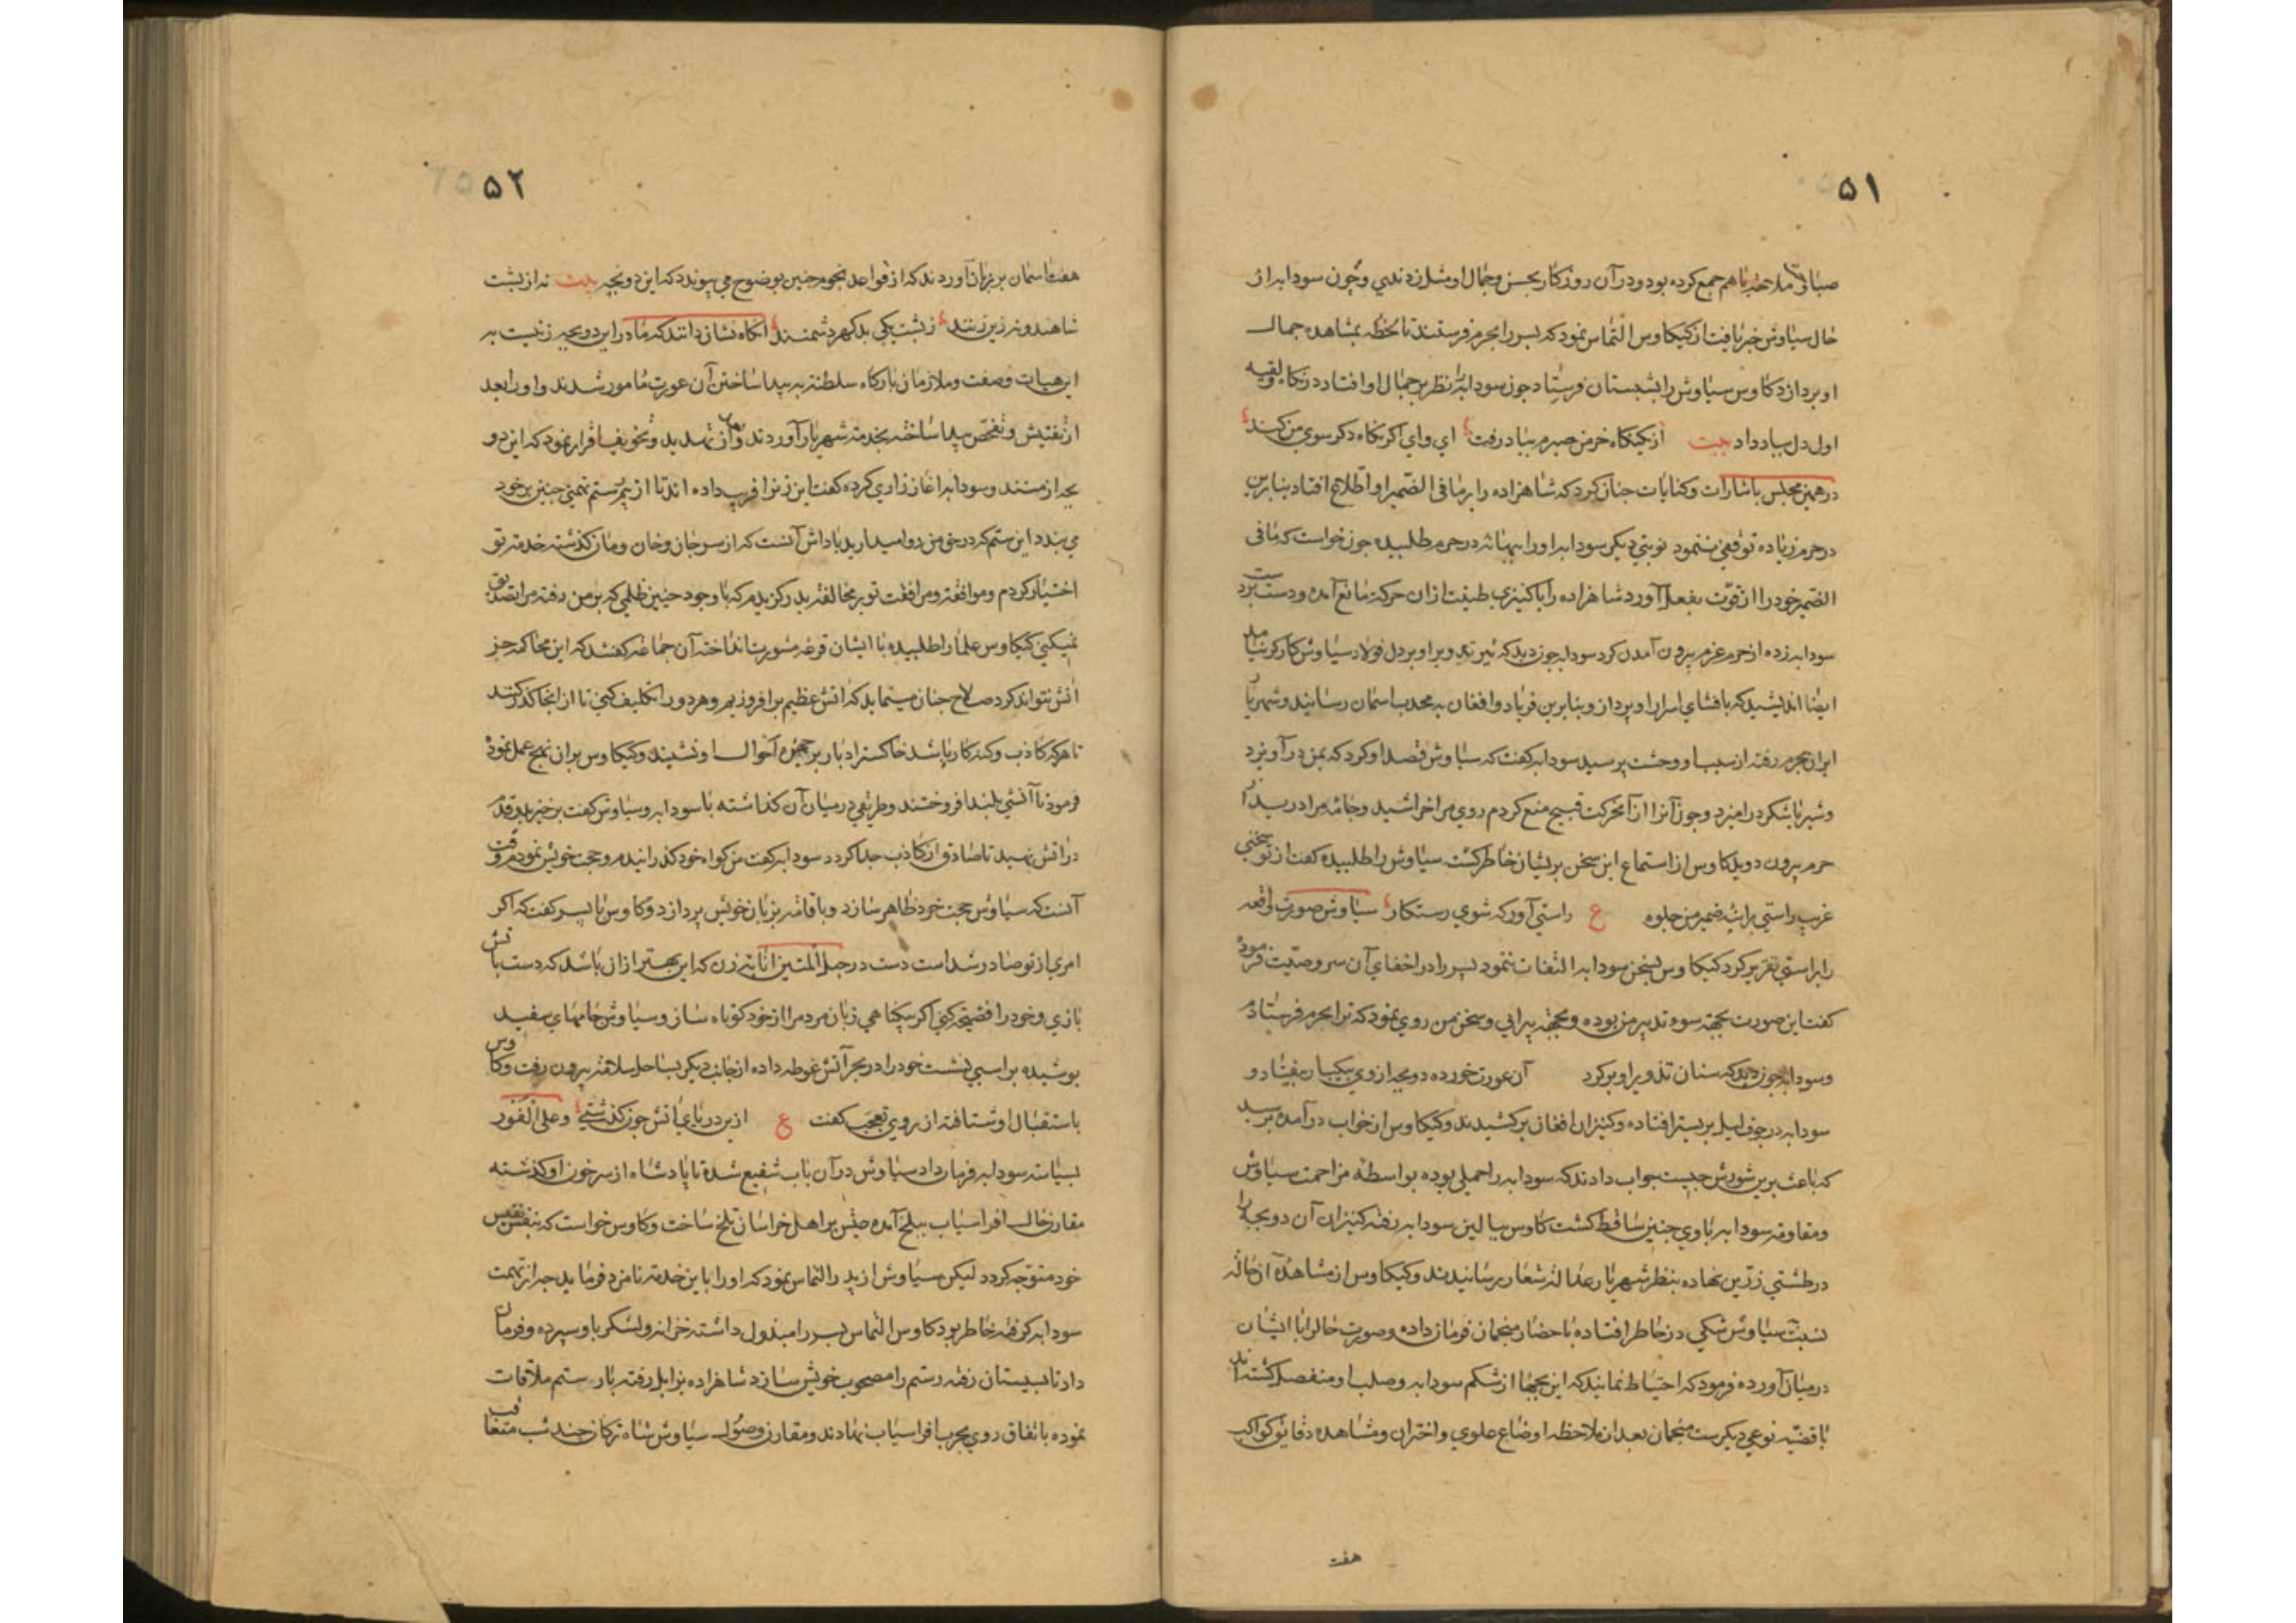 ۵۱
صباحت و ملاحت با هم جمع کرده بود و در آن روزکار بحسن و جمال او مثل زدندی و چون سودابه از
حال سیاوش خبر یافت از کیکاوس التماس نمود که پسر را بحرم فرستند تا لحظه بمشاهده جمال
او پردازد کاوس سیاوش را بشبستان فرستاد چون سودابه را نظر بر جمال او افتاد در نکاه
اول دل بباد داد بیت از یکنکاه خرمن صبرم بباد رفت ای وای اکر نکاه دکر سوی من کند
در همین مجلس باشارات و کنایات چنان کرد که شاهزاده را بر ما فی الضمیر او اطلاع افتاد بنابرین
در حرم زیاده توقفی ننمود نوبتی دیکر سودابه او را ببهانه در حرم طلبیده چون خواست که ما فی
الضمیر خود را از قوت بفعل آورد شاهزاده را پاکیزی طینت از ان حرکت مانع آمده و دست برد
سودابه زده از حرم عزم بیرون آمدن کرد سودابه چون دید که تیر تدویر او بر دل فولاد سیاوش کارکر نیامد
ایضا اندیشید که بافشای اسرار او پردازد بنابرین فریاد و افغان به محدب آسمان رسانید و شهریار
ایران بحرم رفته از سبب او وحشت پرسید سودابه کفت که سیاوش قصد او کرد که بمن در آویزد
و شیر با شکر در امیزد و چون آنرا از آن حرکت قبیح منع کردم روی مرا خراشید و جامه مرا درید از
حرم بیرون دوید کاوس از استماع این سخن پریشان خاطر کشت سیاوش را طلبیده کفت از تو سخنی
غریب راستی براینه ضمیر من جلوه ع راستی آور که شوی رستکار سیاوش صورت واقعه
را براستی تقریر کرد کیکاوس بسخن سودابه التفات ننمود پسر را در اخفای آن سر وصیت فرمود
کفت این صورت بجهة سوء تدبیر من بوده و بجهة بیرائی و سخن من روی نمود که ترا بحرم فرستادم
و سودابه چون دید که سنان تذویر او بر کرد آن عورت خورده دو بچه از وی بیکبار بیفتاد و
سودابه در جوف لیل بر بستر افتاده و کنیزان افغان بر کشیدند و کیکاوس از خواب در آمده پرسید
که باعث برین شورش چیست جواب دادند که سودابه را حملی بوده بواسطه مزاحمت سیاوش
و مقاومت سودابه با وی جنین ساقط کشت کاوس ببالین سودابه رفته کنیزان آن دو بچه را
در طشتی زرین نهاده بنظر شهریار عدالت شعار رسانیدند و کیکاوس از مشاهده آن حالت
نسبت سیاوش شکی در خاطر افتاده باحضار منجمان فرمان داده و صورت حال را با ایشان
در میان آورده فرمود که احتیاط نمایند که این بچها از شکم سودابه و صلب او منفصل کشته اند
یا قضیه نوعی دیکرست منجمان بعد از ملاحظه اوضاع علوی و اختران و مشاهده دقایق کواکب
هفت
۵۲
هفت آسمان بر زبان آوردند که از قواعد نجوم چنین بوضوح می پیوندد که این دو بچه بیت نه از پشت
شاهند و نه زین زنند ز پشت یکی بدکهر دشمنند آنکاه نشان دادند که مادر این دو بچه زنیست به
این هیات و صفت و ملازمان بارکاه سلطنت به پیدا ساختن آن عورت مامور شدند و او را بعد
از تفتیش و تفحص پیدا ساخته بخدمت شهریار آوردند و آن زن بتهدید و تخویف اقرار نمود که این دو
بچه از منند و سودابه اغاز زاری کرده کفت این زن را فریب داده اند تا از بیم رستم تهمتی چنین بر خود
می بندد این ستم که در حق من روا میدارید پاداش آنست که از سر جان و خان و مان کذشته خدمت تو
اختیار کردم و موافقت و مرافقت تو بر مخالفت پدر کزیدم که با وجود چنین ظلمی که بر من رفته مرا تصدیق
نمیکنی کیکاوس علما را طلبیده با ایشان قرعه مشورت انداخته آن جماعه کفتند که این محاکمه جز
آتش نتواند کرد صلاح چنان مینماید که آتش عظیم بر افروزیم و هر دو را تکلیف کنی تا از انجا کذر کنند
تا هر که کاذب و کنه کار باشد خاکستر ادبار بر چهره احوال او نشیند و کیکاوس بر ان نهج عمل نموده
فرمود تا آتشی بلند افروختند و طریقی در میان آن کذاشته با سودابه و سیاوش کفت برخیزید و قدم
در آتش نهید تا صادق از کاذب جدا کردد سودابه کفت من کواه خود کذرانیدم و حجت خویش نمودم وقت
آنست که سیاوش حجت خود ظاهر سازد و باقامت بزبان خویش پردازد و کاوس با پسر کفت که اکر
امری از تو صادر شد است دست در حبل المتین انابت زن که این بهتر از ان باشد که دست باتش
بازی و خود را فضیحت کنی اکر بیکناهی زبان مردم را از خود کوتاه ساز و سیاوش جامهای سفید
پوشیده بر اسبی نشست خود را در بحر آتش غوطه داده از جانب دیکر بساحل سلامت بیرون رفت و کاوس
باستقبال او شتافته از روی تعجب کفت ع ازین دریای آتش چون کذشتی و علی الفور
بسیاست سودابه فرمان داد سیاوش در آن باب شفیع شده تا پادشاه از سر خون او کذشته
مقارن حال افراسیاب ببلخ آمده عیش بر اهل خراسان تلخ ساخت و کاوس خواست که بنفس نفیس
خود متوجه کردد لیکن سیاوش از پدر التماس نمود که او را باین خدمت نامزد فرماید چه از تهمت
سودابه کوفته خاطر بود کاوس التماس پسر را مبذول داشته خزانه و لشکر باو سپرده و فرمان
داد تا بسیستان رفته رستم را مصحوب خویش سازد شاهزاده بزابل رفته با رستم ملاقات
نموده باتفاق روی بحرب افراسیاب نهادند و مقارن وصول سیاوش شاه ترکان چند شب متعاقب